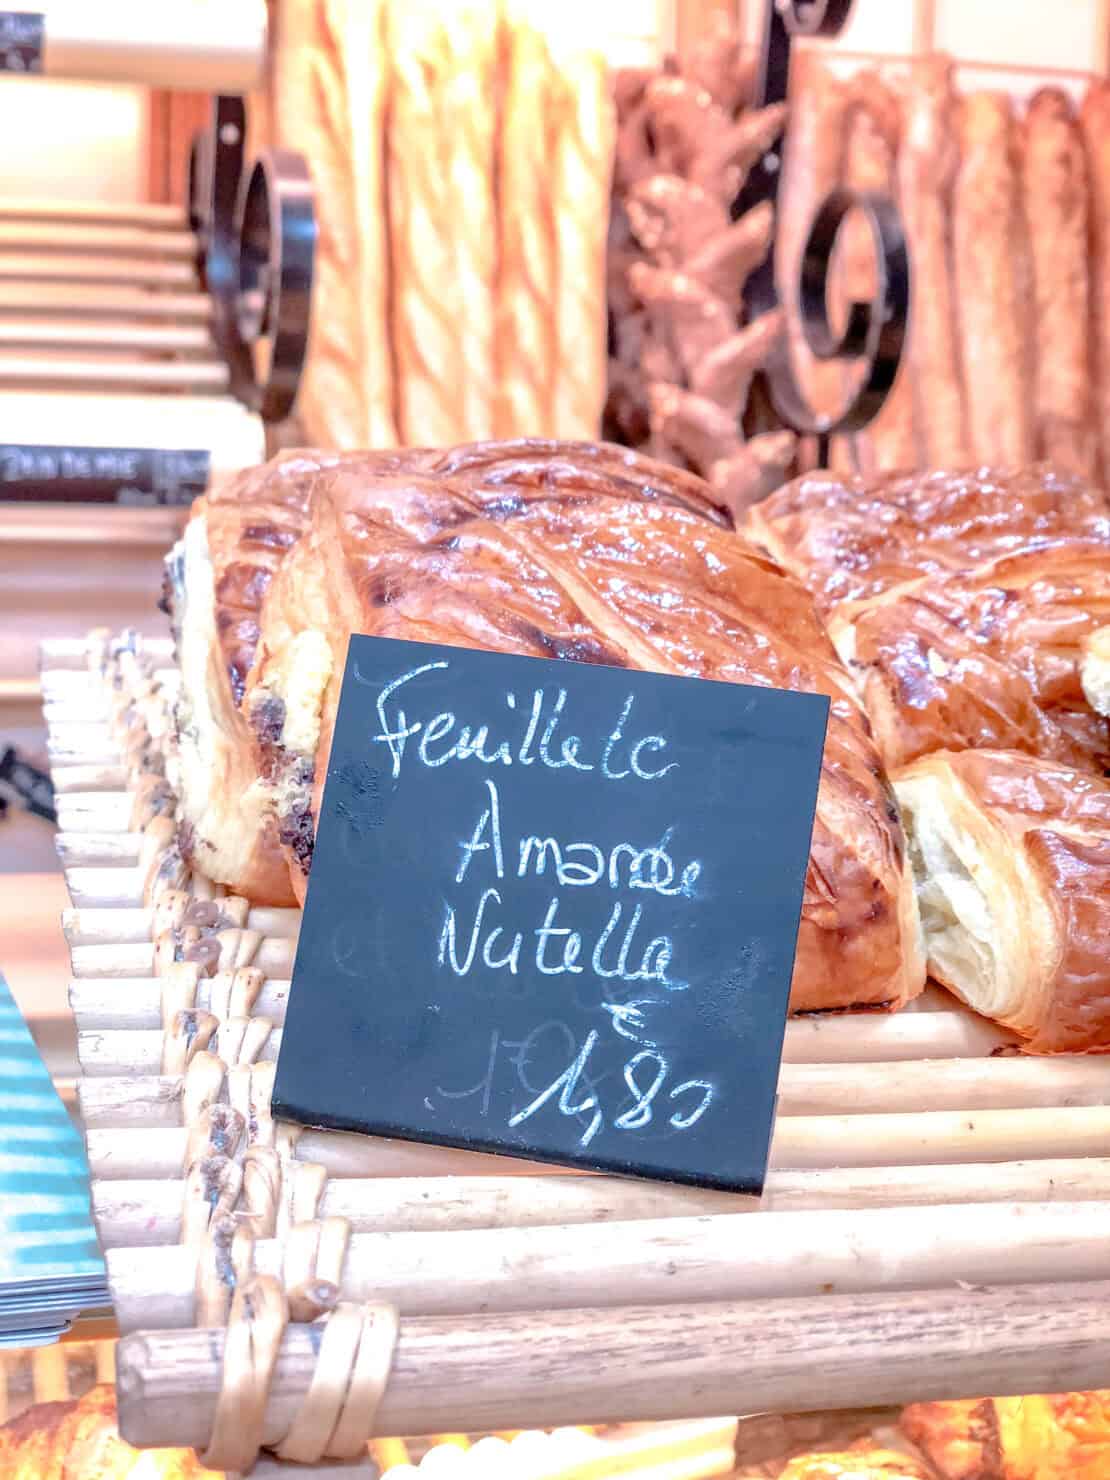 Feuilleté
Amande
Nutella
€
1,80